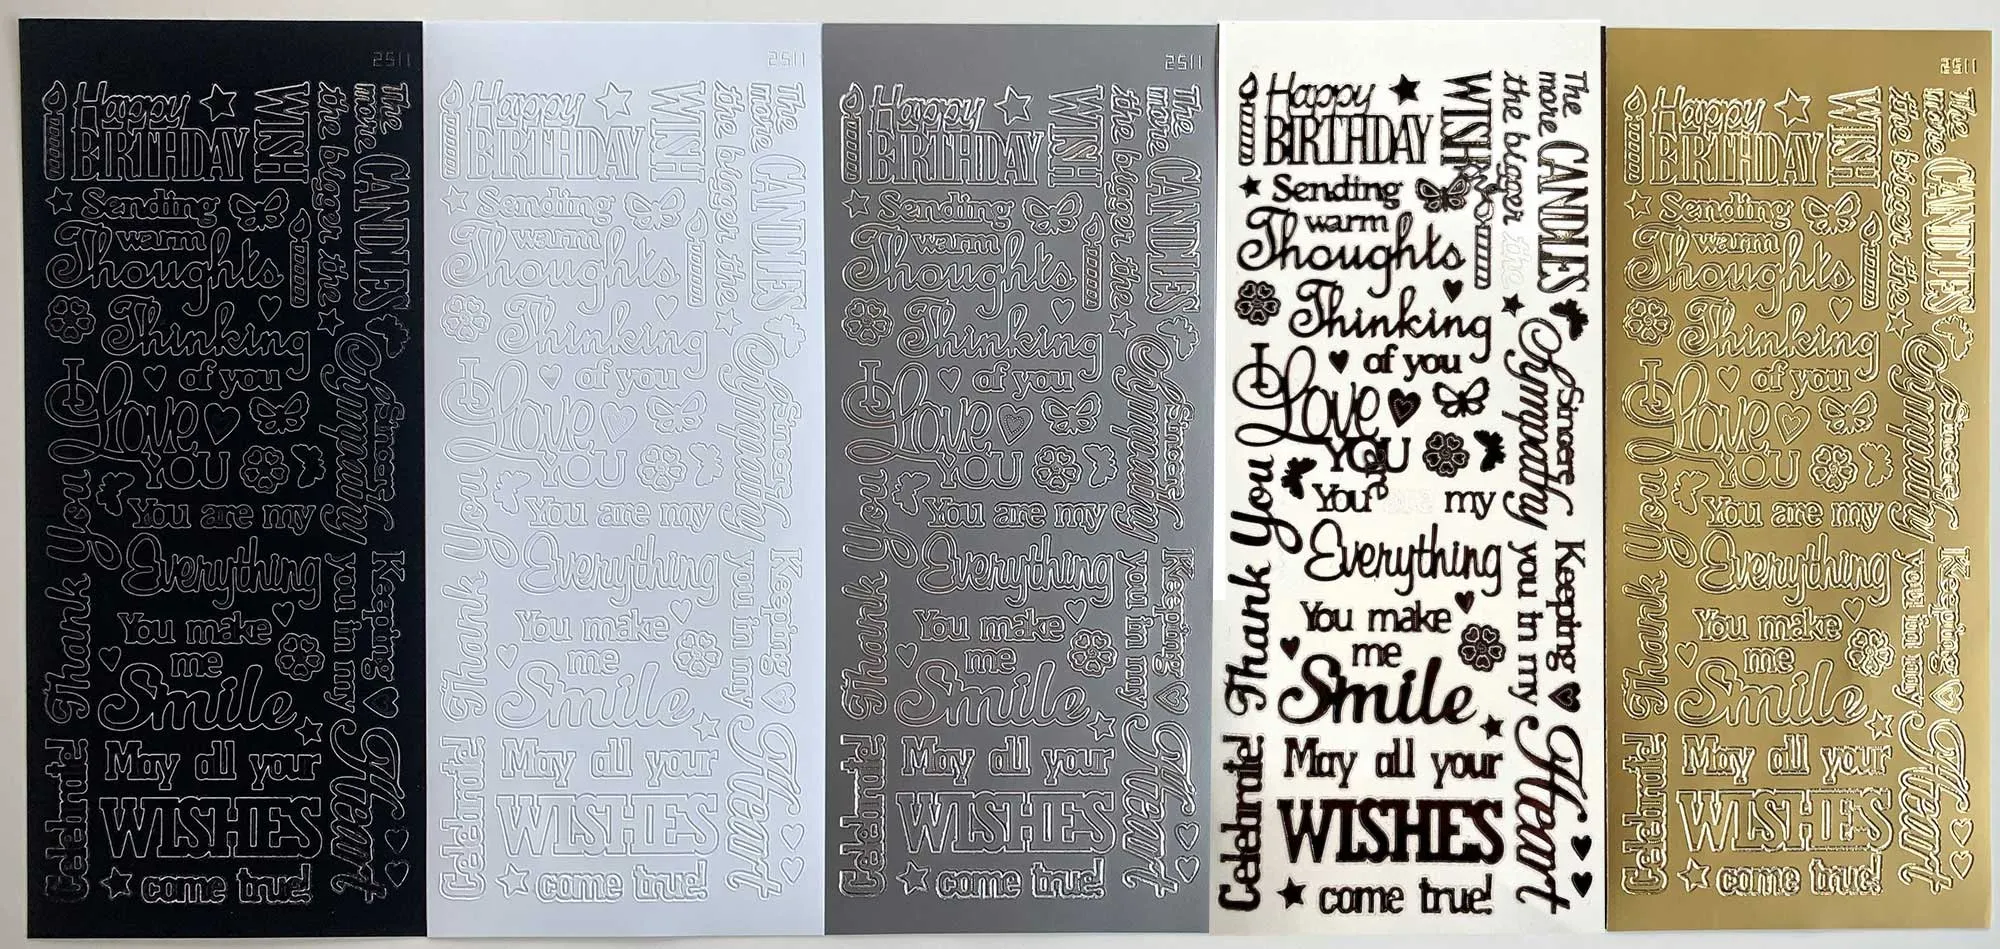 2511
Happy
BIRTHDAY
The
more
CANDLES
the bigger the
WISH
Sending
warm
Thoughts
Thinking
of you
I Love
YOU
Sincere
Sympathy
Thank You
You are my
Everything
You make
me
Smile
Keeping
you in my
Heart
Celebrate!
May all your
WISHES
come true!
2511
Happy
BIRTHDAY
The
more
CANDLES
the bigger the
WISH
Sending
warm
Thoughts
Thinking
of you
I Love
YOU
Sincere
Sympathy
Thank You
You are my
Everything
You make
me
Smile
Keeping
you in my
Heart
Celebrate!
May all your
WISHES
come true!
2511
Happy
BIRTHDAY
The
more
CANDLES
the bigger the
WISH
Sending
warm
Thoughts
Thinking
of you
I Love
YOU
Sincere
Sympathy
Thank You
You are my
Everything
You make
me
Smile
Keeping
you in my
Heart
Celebrate!
May all your
WISHES
come true!
Happy
BIRTHDAY
The
more
CANDLES
the bigger the
WISH
Sending
warm
Thoughts
Thinking
of you
I Love
YOU
Sincere
Sympathy
Thank You
You are my
Everything
You make
me
Smile
Keeping
you in my
Heart
Celebrate!
May all your
WISHES
come true!
1152
Happy
BIRTHDAY
The
more
CANDLES
the bigger the
WISH
Sending
warm
Thoughts
Thinking
of you
I Love
YOU
Sincere
Sympathy
Thank You
You are my
Everything
You make
me
Smile
Keeping
you in my
Heart
Celebrate!
May all your
WISHES
come true!